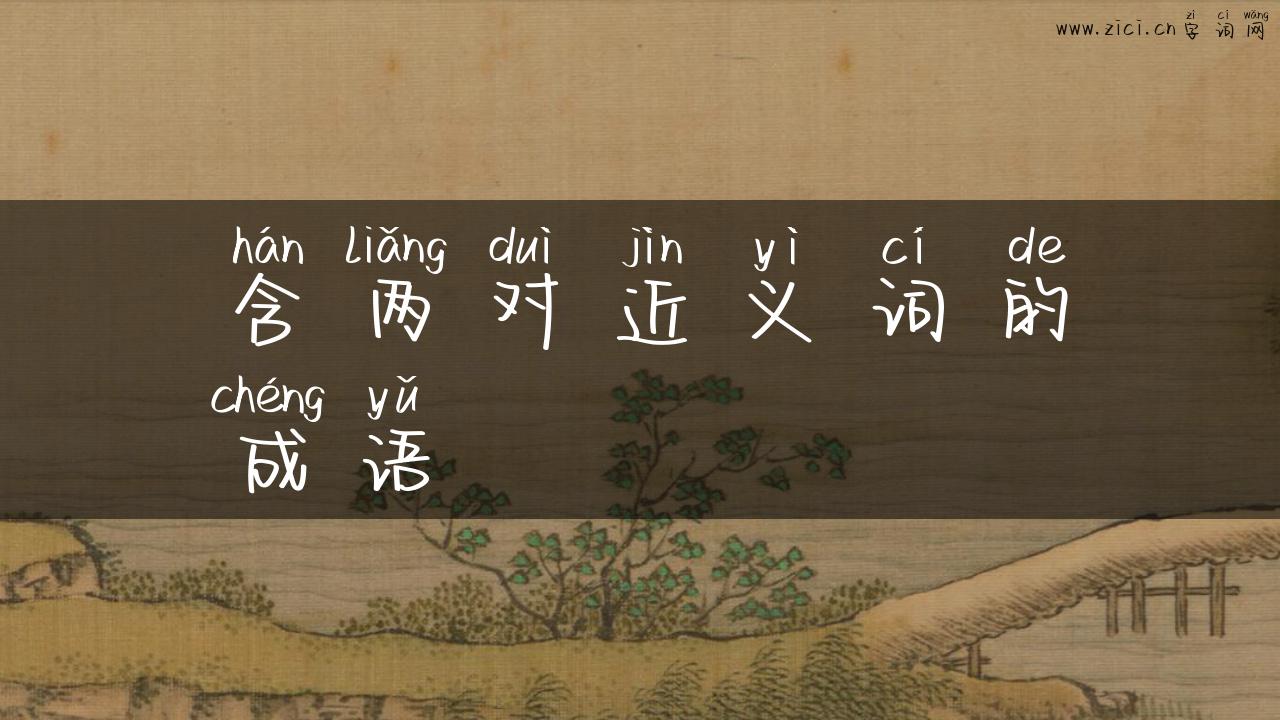 zì cí wǎng
www.zici.cn 字词网
hán liǎng duì jìn yì cí de
含两对近义词的
chéng yǔ
成语